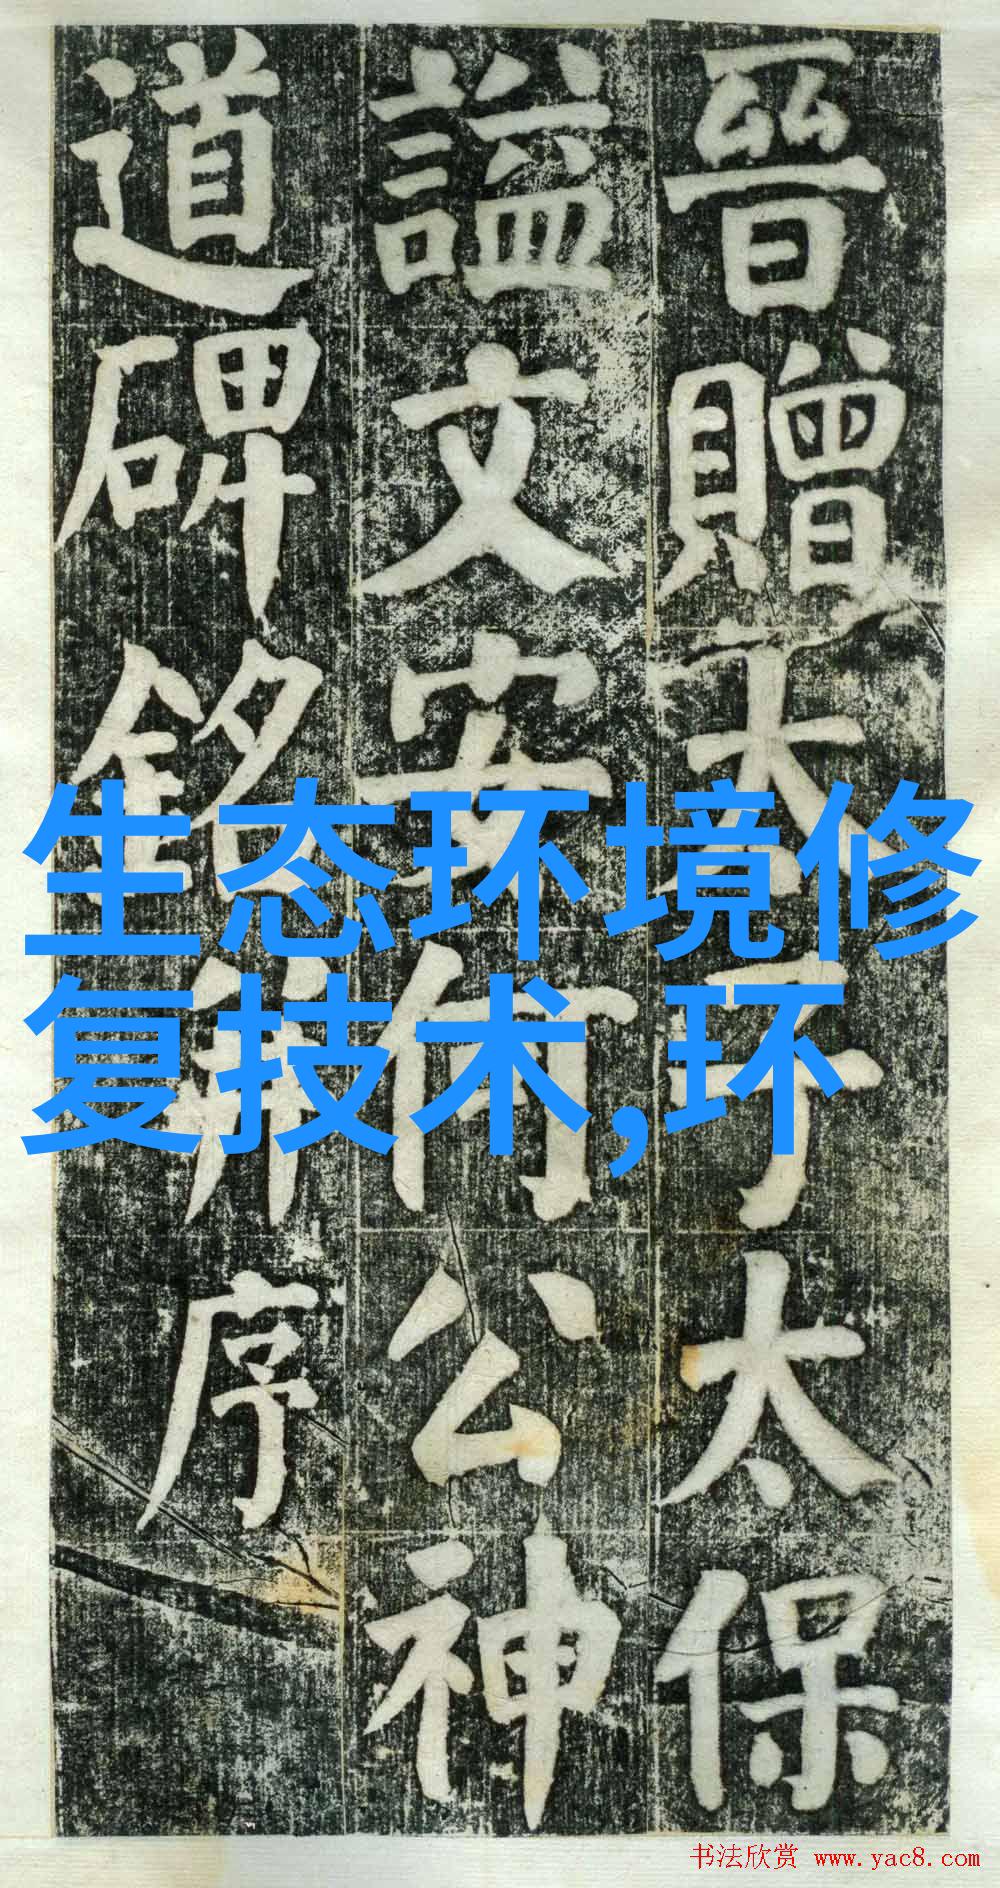 晉贈太子太保
謚文安何公神
道碑銘并序
生态环境修
复技术,环
书法欣赏 www.yac8.com